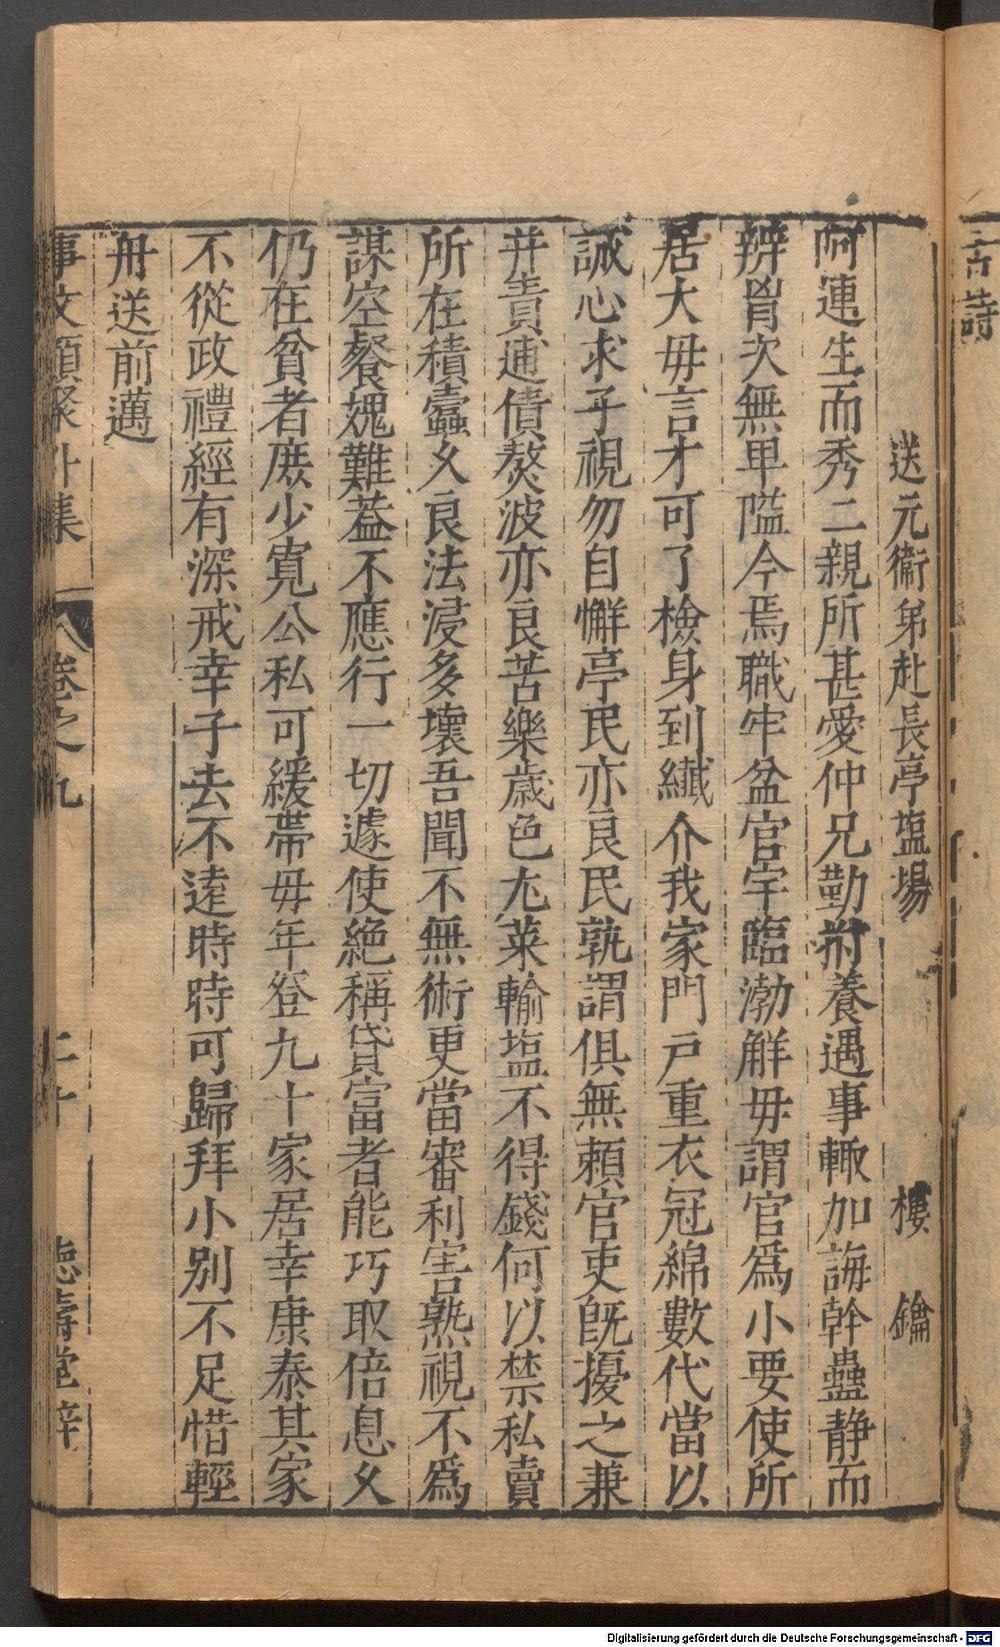 古詩
送元衛弟赴長亭塩場　樓鑰
阿連生而秀二親所甚愛仲兄勤鞠養遇事輙加誨幹蠱静而
辨胷次無畢隘今焉職牢盆官宇臨渤觧毋謂官為小要使所
居大毋言才可了檢身到纎介我家門戸重衣冠綿數代當以
誠心求子視勿自懈亭民亦良民孰謂俱無頼官吏旣擾之兼
并責逋債熬波亦良苦樂歳色尤菜輸塩不得錢何以禁私賣
所在積蠹久良法浸多壞吾聞不無術更當審利害熟視不為
謀空餐媿難蓋不應行一切遽使絶稱貸富者能巧取倍息久
仍在貧者庶少寛公私可緩帶毋年登九十家居幸康泰其家
不從政禮經有深戒幸子去不逺時時可歸拜小别不足惜輕
舟送前邁
事文類聚外集　卷之九　二十　德壽堂梓
Digitalisierung gefördert durch die Deutsche Forschungsgemeinschaft - DFG